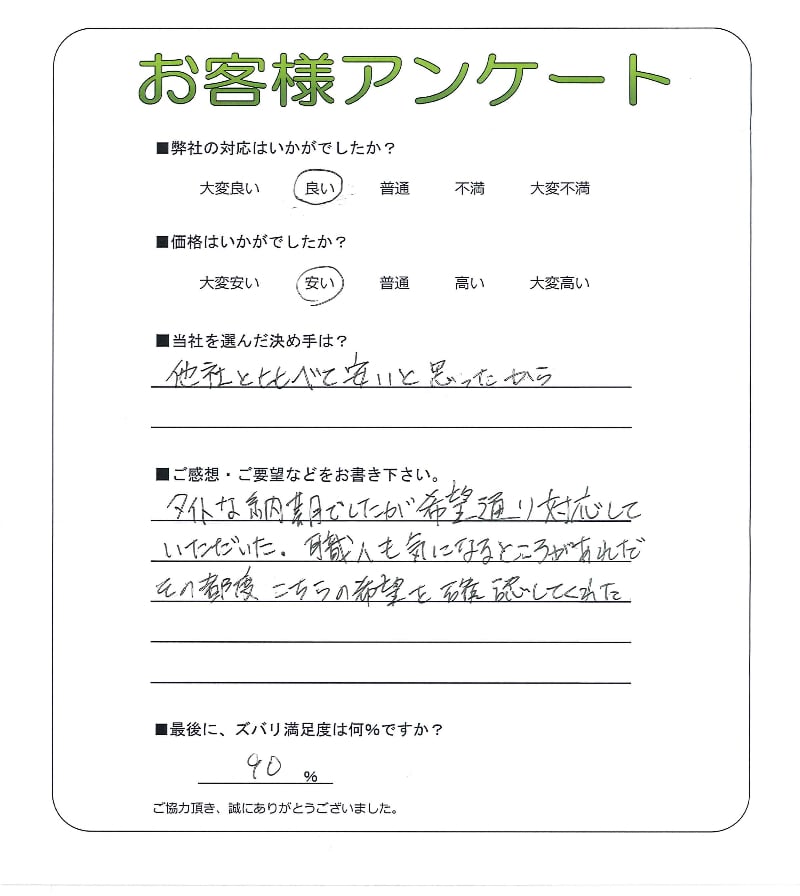 お客様アンケート
■弊社の対応はいかがでしたか？
大変良い 良い 普通 不満 大変不満
■価格はいかがでしたか？
大変安い 安い 普通 高い 大変高い
■当社を選んだ決め手は？
他社と比べて安いと思ったから
■ご感想・ご要望などをお書き下さい。
タイトな納期でしたが希望通り対応して
いただいた。職人も気になるところがあれば
その都度こちらの希望を確認してくれた
■最後に、ズバリ満足度は何%ですか？
90 %
ご協力頂き、誠にありがとうございました。